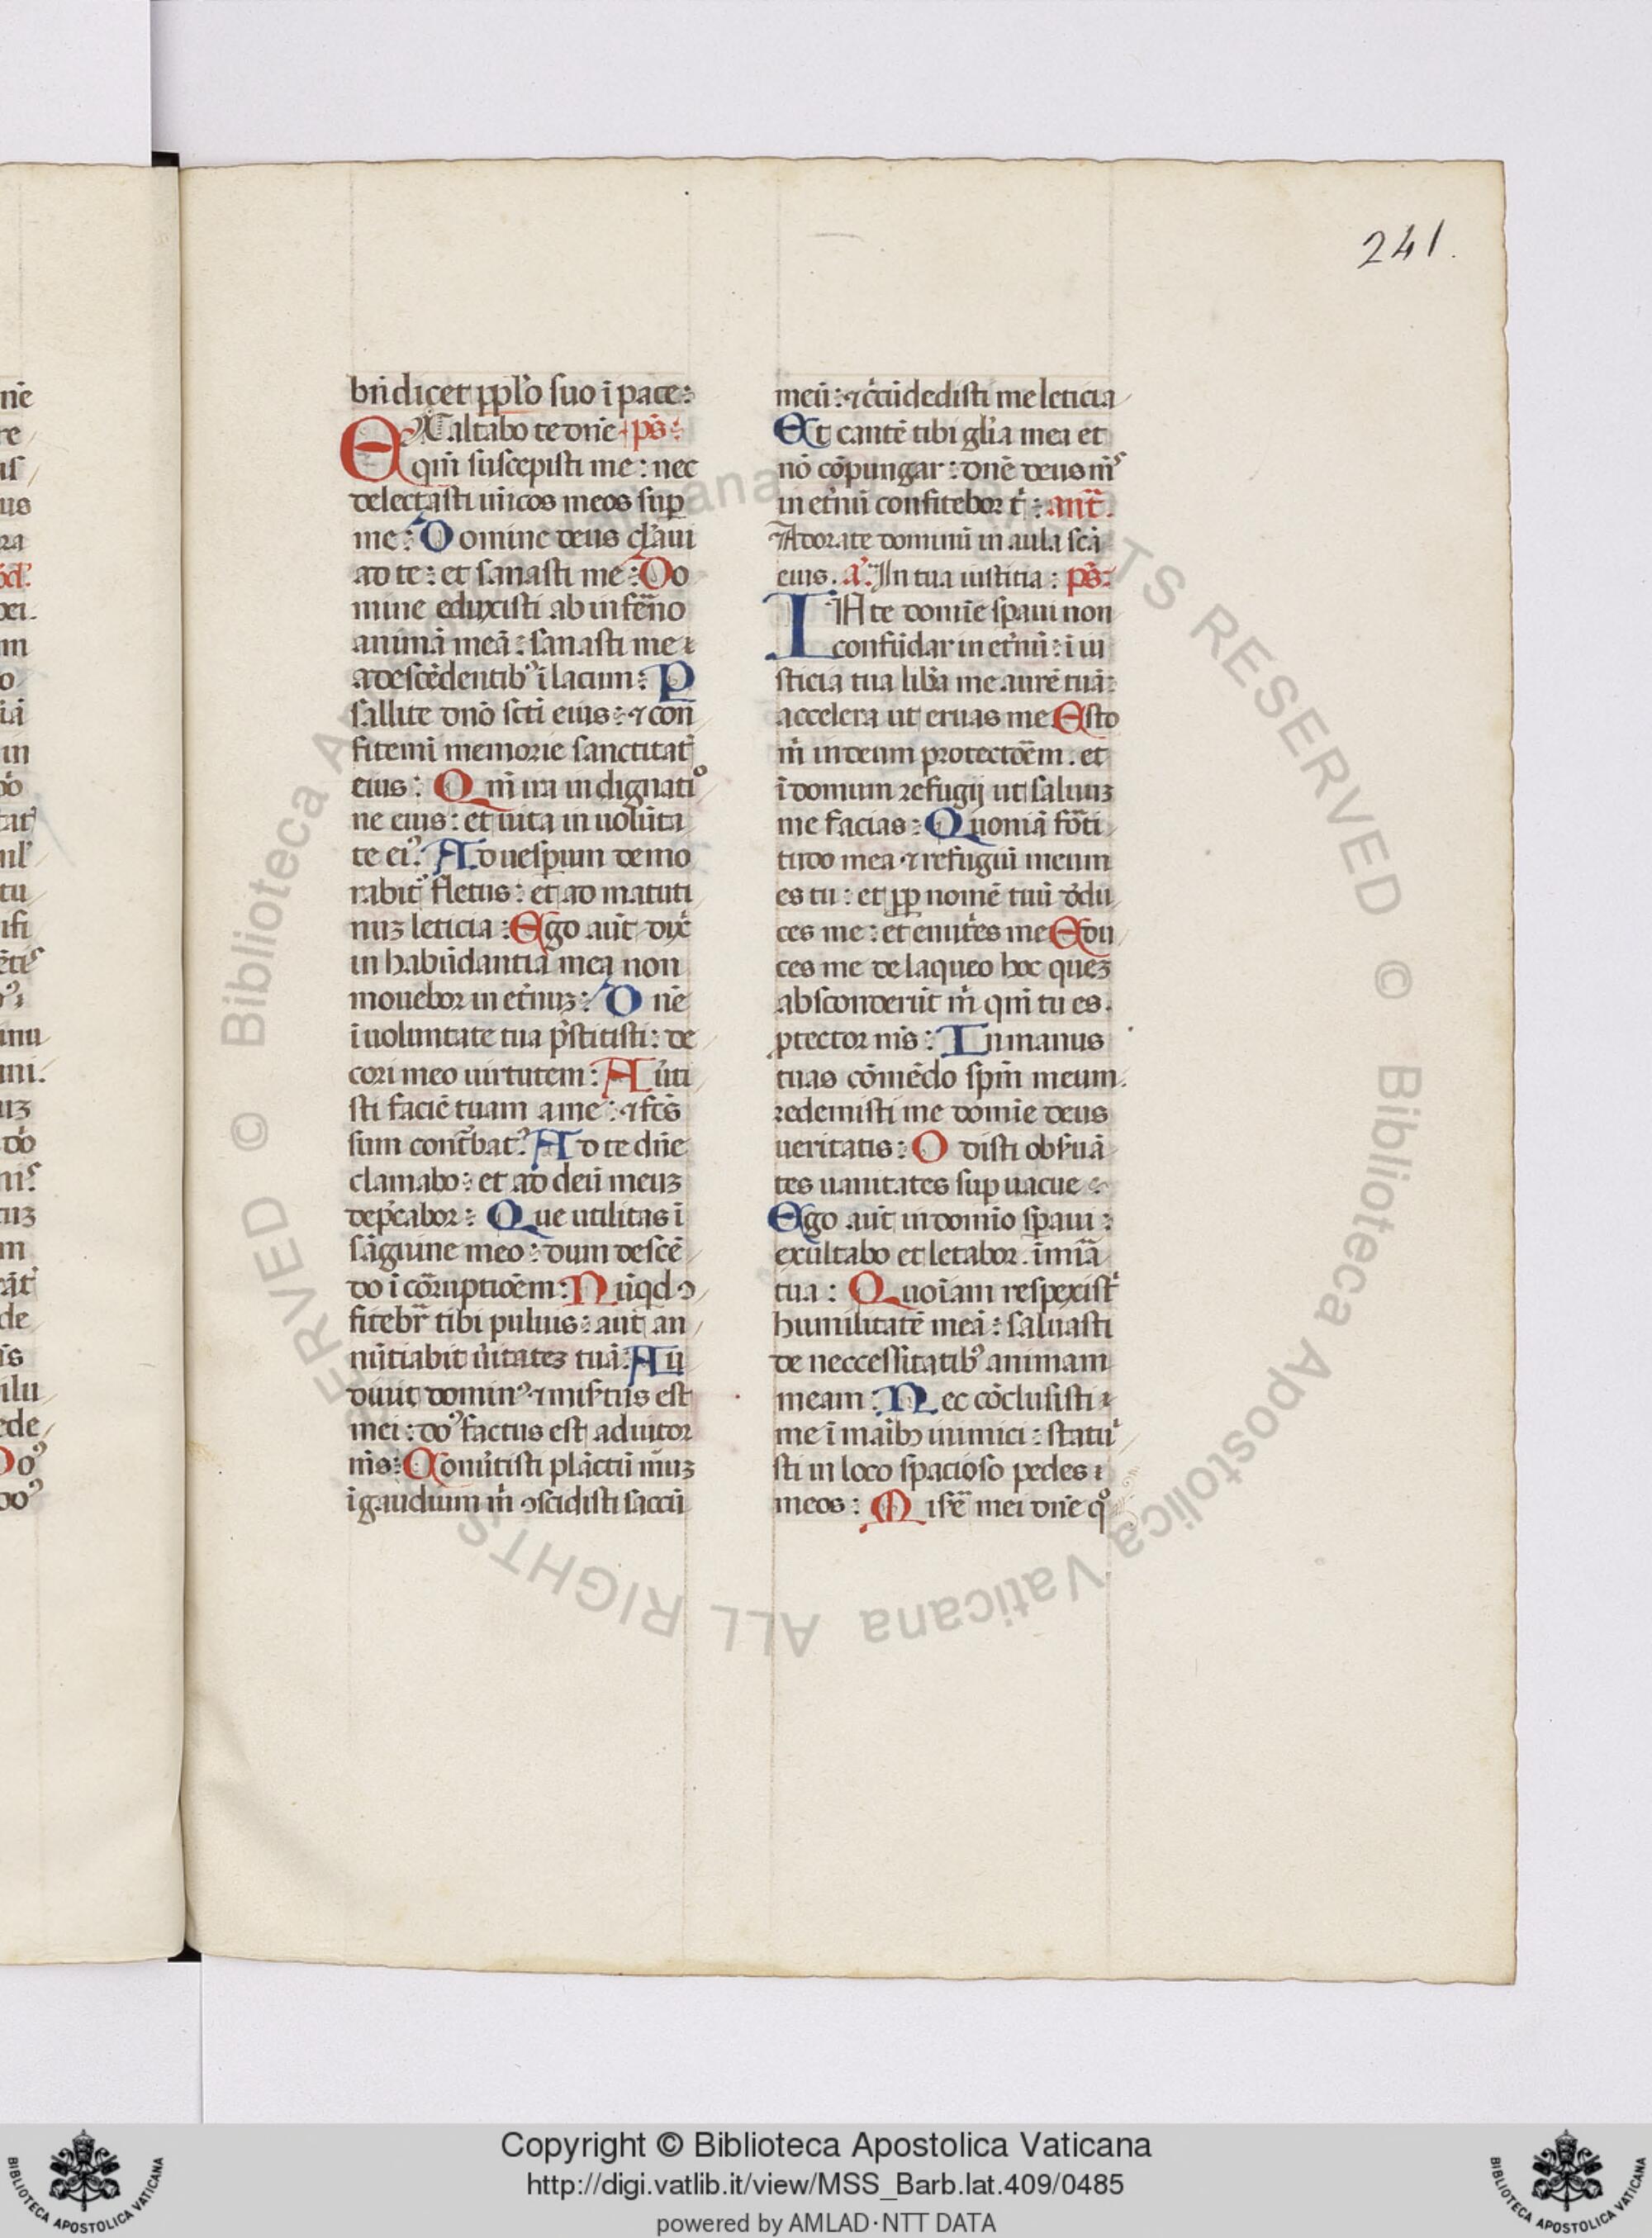 241.
bn̄dicet pplo̓ suo ī pace:
EXaltabo te dnē. ps̄:
qm̄ suscepisti me: nec
delectasti in̄icos meos sup̱
me: Domine deus cla̓aui
ad te: et sanasti me: Do
mine eduxisti ab infẽno
animā meā: sanasti me
a descēdentibꝰ ī lacum: P
sallite dnō sc̄ti eius: ⁊ con
fitemī memorie sanctitatͥ
eius: Qm̄ ira in dignatiͦ
ne eius: et uita in uolūta
te eiꝰ. Ad uesp̱um demo
rabitᷣ fletus: et ad matuti
nuꝫ leticia: Ego aūt dixͥ
in habūdantia mea non
mouebor in et̓nuꝫ: Dnē
ī uoluntate tua p̄stitisti: de
cori meo uirtutem: Au̓ti
sti faciē tuam a me: ⁊ fc̄s
sum cont̾batꝰ. Ad te dn̄e
clamabo: et ad deū meuꝫ
dep̄cabor: Que utilitas ī
sāguine meo: dum descē
do ī corruptiōem: Nūqd ꝯ
fitebr̄ tibi puluis: aut an
nūtiabit u̓itateꝫ tuā. Au
diuit dominꝰ ⁊ mis̾tus est
mei: doꝰ factus est adiutor
m̄s: Conu̓tisti plāctū meuꝫ
ī gaudium m̄ ꝯscidisti saccū
meū: ⁊ cͥcūdedisti me leticia
Et cantē tibi gl̓ia mea et
nō cōpungar: dnē deus mˢ
in et̓nū confitebor tͥ: ant̄.
Adorate dominū in aula scā
eius. a̓. In tua iusticia: ps̄:
IN te domīe sp̱aui non
confūdar in et̓nū: ī iu
sticia tua lib̓a me. aurē tuā:
accelera ut eruas me Esto
m̄ in deum protectōem. et
ī domum refugij ut saluuꝫ
me facias: Quoniā forti
tudo mea ⁊ refugiū meum
es tu: et pp̱ nomē tuū dͤdu
ces me: et enutͥes me Edu
ces me de laqueo hoc queꝫ
absconderūt m̄ qm̄ tu es.
ꝓtector m̄s: In manus
tuas cōmēdo spm̄ meum.
redemisti me domīe deus
ueritatis: Odisti obs̾uā
tes uanitates sup̱uacue
Ego aūt in domīo sp̱aui:
exultabo et letabor. ī mīa
tua: Quoīam respexistͥ
humilitatē meā: saluasti
de neccessitatibꝰ animam
meam: Nec cōclusisti
me ī maībꝫ inimici: statu
sti in loco spacioso pedes
meos: Mise̓ mei dnē qͦ
Copyright © Biblioteca Apostolica Vaticana
http://digi.vatlib.it/view/MSS_Barb.lat.409/0485
powered by AMLAD·NTT DATA
BIBLIOTECA APOSTOLICA VATICANA
BIBLIOTECA APOSTOLICA VATICANA
© Biblioteca Apostolica Vaticana ALL RIGHTS RESERVED © Biblioteca Apostolica Vaticana ALL RIGHTS RESERVED